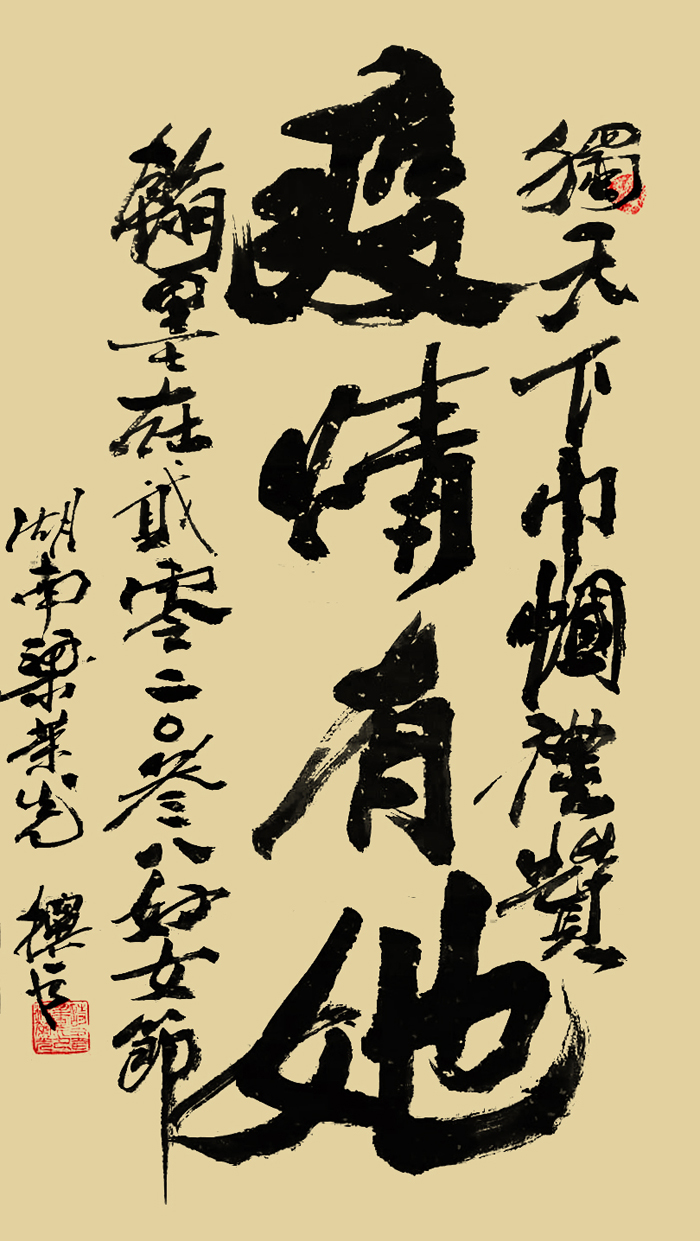 獨天下巾幗禮贊
疫情有她
翰墨在貳零二〇叁八婦女節
湖南梁榮先 撰書